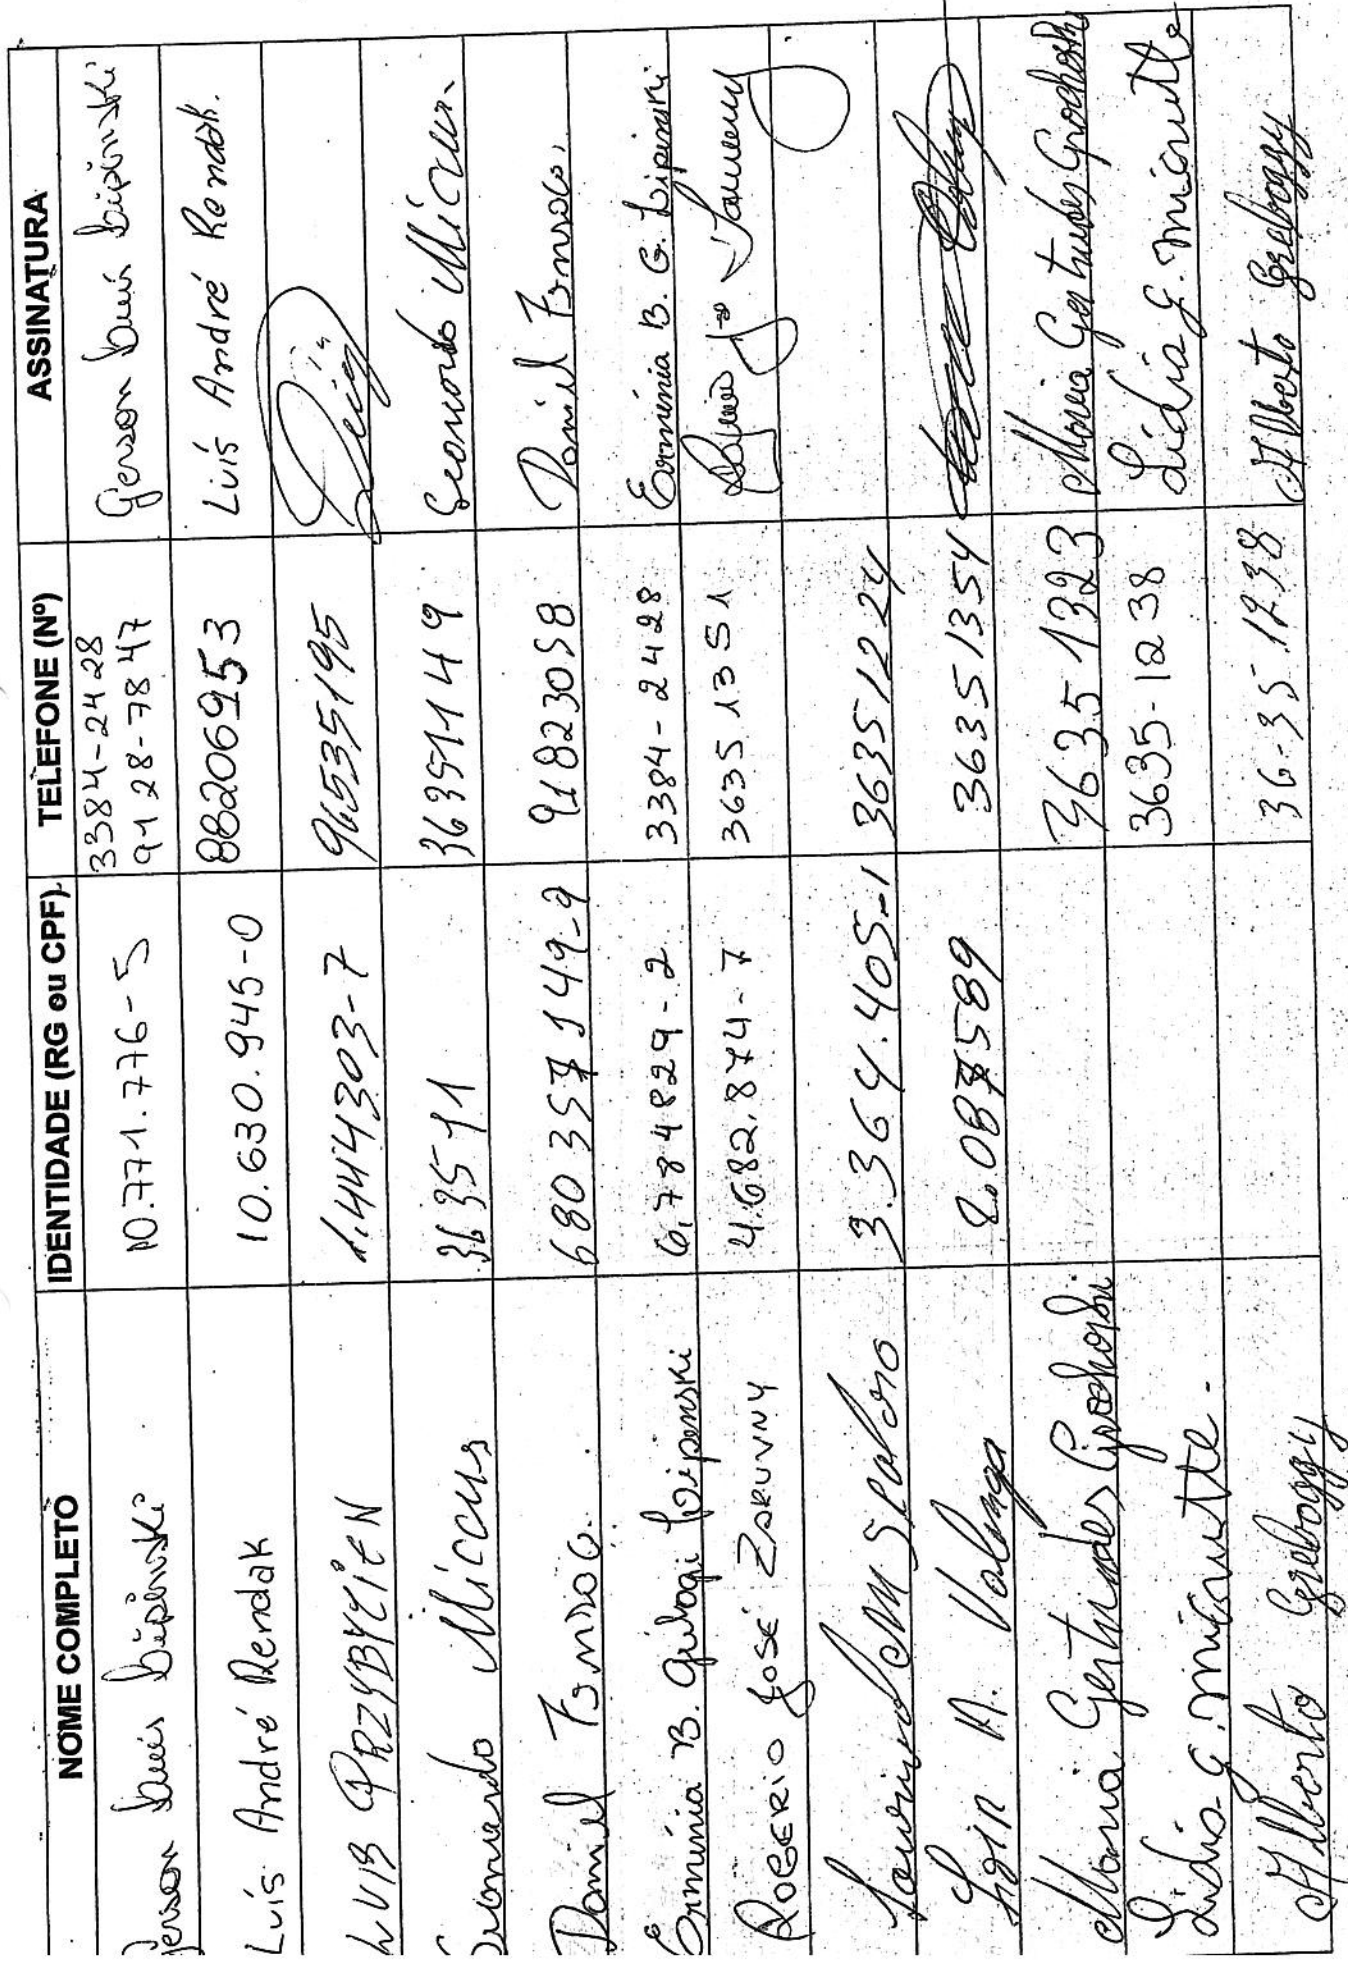 NOME COMPLETO IDENTIDADE (RG ou CPF) TELEFONE (Nº) ASSINATURA
Gerson Luis Lipinski 10.771.776-5 3384-2428 9128-7847 Gerson Luis Lipinski
Luís André Rendak 10.630.945-0 88206953 Luís André Rendak.
LUIS PRZYBYCIEN 1.444303-7 96535195
Leonardo Miccus 363511 36351149 Leonardo
Daniel 680357149-9 91823058 Daniel
Erminia B. Gulogi Lipinski 6.784829-2 3384-2428 Erminia B. G. Lipinski
ROGERIO JOSÉ ZARUVNY 4.682.874-7 36351351
3.364.405-1 36351224
Ligia A. Valenga 36351354
Maria Gertrudes Grochoski 3635-1323 Maria Gertrudes Grochoski
Lidia G. 3635-1238 Lidia G.
Alberto Grebogy 36-35 1238 Alberto Grebogy